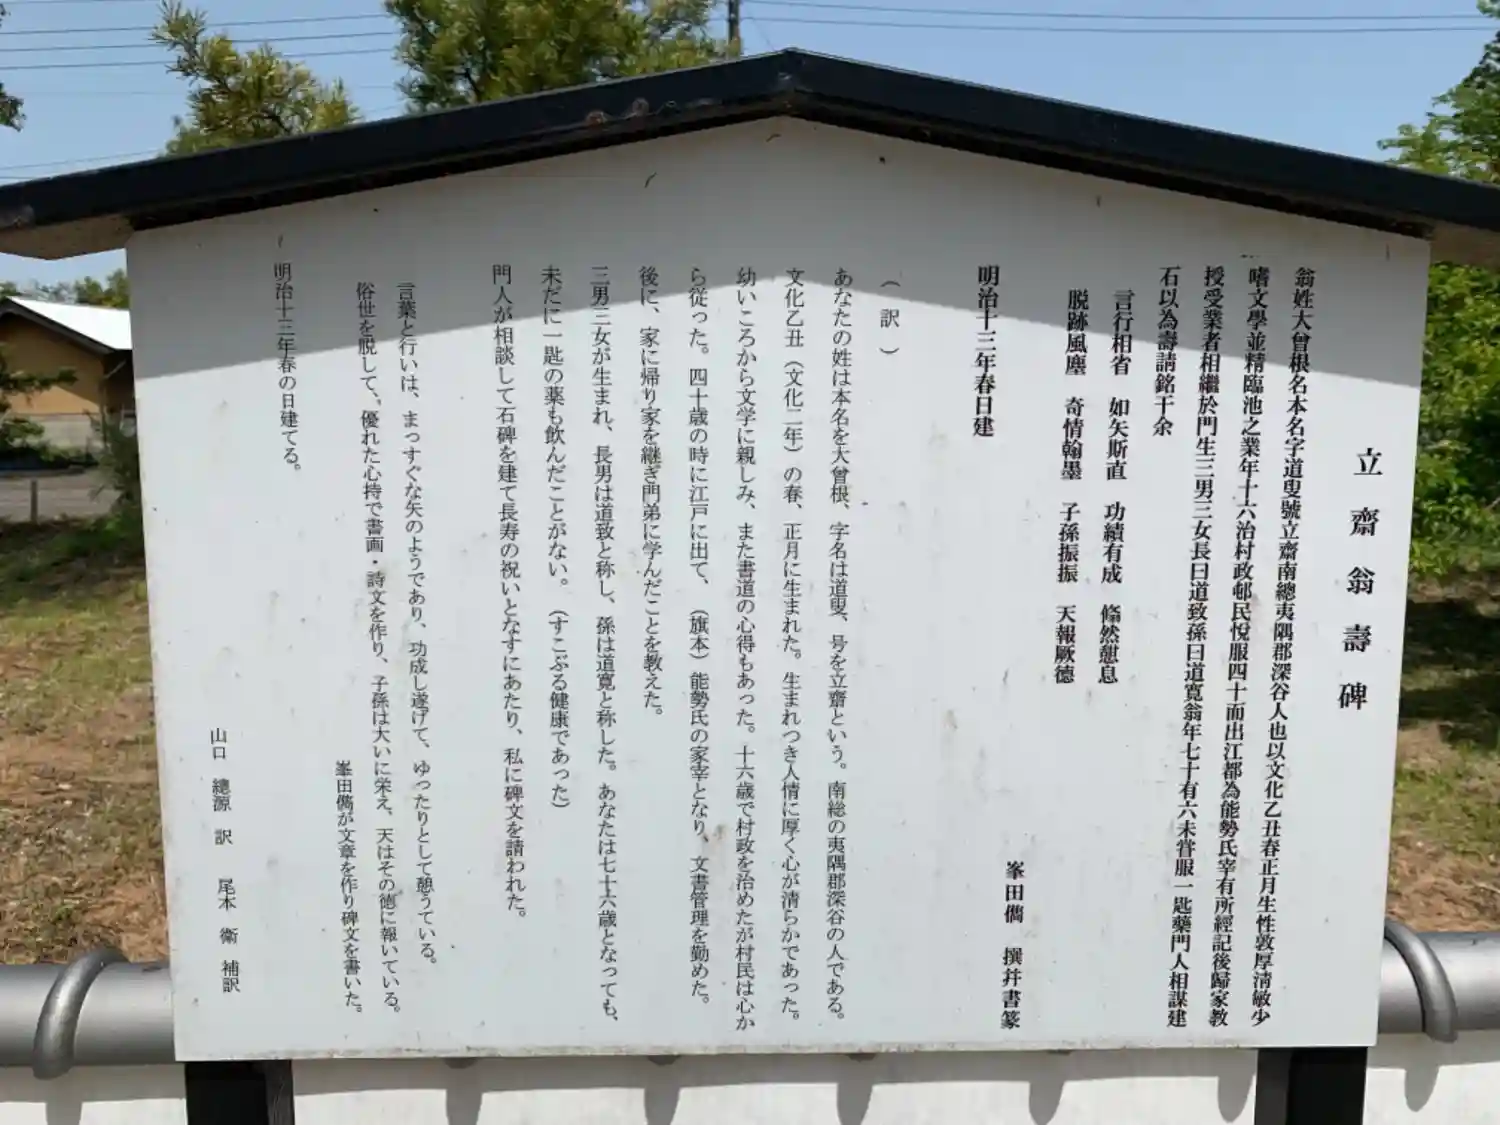 立齋翁壽碑
翁姓大曾根名本名字道叟號立齋南總夷隅郡深谷人也以文化乙丑春正月生性敦厚淸敏少
嗜文學並精臨池之業年十六治村政邨民悅服四十而出江都為能勢氏宰有所經記後歸家教
授受業者相繼於門生三男三女長曰道致孫曰道寛翁年七十有六未甞服一匙藥門人相謀建
石以為壽請銘干余
言行相省 如矢斯直 功績有成 翛然憩息
脱跡風塵 奇情翰墨 子孫振振 天報厥德
峯田儁 撰并書篆
明治十三年春日建
（訳）
あなたの姓は本名を大曾根、字名は道叟、号を立齋という。南総の夷隅郡深谷の人である。
文化乙丑（文化二年）の春、正月に生まれた。生まれつき人情に厚く心が清らかであった。
幼いころから文学に親しみ、また書道の心得もあった。十六歳で村政を治めたが村民は心か
ら従った。四十歳の時に江戸に出て、（旗本）能勢氏の家宰となり、文書管理を勤めた。
後に、家に帰り家を継ぎ門弟に学んだことを教えた。
三男三女が生まれ、長男は道致と称し、孫は道寛と称した。あなたは七十六歳となっても、
未だに一匙の薬も飲んだことがない。（すこぶる健康であった）
門人が相談して石碑を建て長寿の祝いとなすにあたり、私に碑文を請われた。
言葉と行いは、まっすぐな矢のようであり、功成し遂げて、ゆったりとして憩うている。
俗世を脱して、優れた心持で書画・詩文を作り、子孫は大いに栄え、天はその徳に報いている。
峯田儁が文章を作り碑文を書いた。
明治十三年春の日建てる。
山口 總源 訳 尾本 衛 補訳